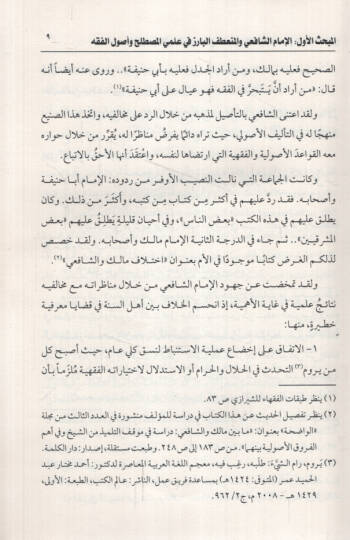 المبحث الأول: الإمام الشافعي والمنعطف البارز في علمي المصطلح وأصول الفقه ٩
الصحيح فعليه بمالك، ومن أراد الجدل فعليه بأبي حنيفة».. وروى عنه أيضاً أنه
قال: «من أراد أن يَتبحرَّ في الفقه فهو عيال على أبي حنيفة»(١).
ولقد اعتنى الشافعي بالتأصيل لمذهبه من خلال الرد على مخالفيه، واتخذ هذا الصنيع
منهجًا له في التأليف الأصولي، حيث تراه دائمًا يفرضُ مناظرًا له، يُقرِّر من خلال حواره
معه القواعدَ الأصولية والفقهية التي ارتضاها لنفسه، واعْتَقدَ أنها الأحقُّ بالاتباع.
وكانت الجماعة التي نالت النصيب الأوفر من ردوده: الإمام أبا حنيفة
وأصحابه. فقد ردَّ عليهم في أكثر مِن كتاب مِن كتبه، وأكثرَ من ذلك. وكان
يطلق عليهم في هذه الكتب «بعض الناس»، وفي أحيان قليلةٍ يَطلِقُ عليهم «بعض
المشرقيين».. ثم جاء في الدرجة الثانية الإمام مالك وأصحابه. ولقد خصص
لذلكم الغرض كتابًا موجودًا في الأم بعنوان «اختلاف مالك والشافعي»(٢).
ولقد تمخضت عن جهود الإمام الشافعي من خلال مناظراته مع مخالفيه
نتائجُ علمية في غاية الأهمية، إذ انحسم الخلاف بين أهل السنة في قضايا معرفية
خطيرةٍ، منها:
١- الاتفاق على إخضاع عملية الاستنباط لنسق كلي عام، حيث أصبح كل
من يروم(٣) التحدث في الحلال والحرام أو الاستدلال لاختياراته الفقهية مُلزَماً بأن
(١) ينظر طبقات الفقهاء للشيرازي ص ٨٣.
(٢) ينظر تفصيل الحديث عن هذا الكتاب في دراسة للمؤلف منشورة في العدد الثالث من مجلة
«الواضحة» بعنوان: «ما بين مالك والشافعي: دراسة في موقف التلميذ من الشيخ وفي أهم
الفروق الأصولية بينهما». من ص ١٨٣ إلى ص ٢٤٨. وطبعت مستقلة، إصدار: دار الكلمة.
(٣) يَروم، رام الشيءَ: طلَبه، رغِب فيه، معجم اللغة العربية المعاصرة لدكتور: أحمد مختار عبد
الحميد عمر (المتوفى: ١٤٢٤هـ) بمساعدة فريق عمل، الناشر: عالم الكتب، الطبعة: الأولى،
١٤٢٩ هـ - ٢٠٠٨ م، ج٢/ ٩٦٢.